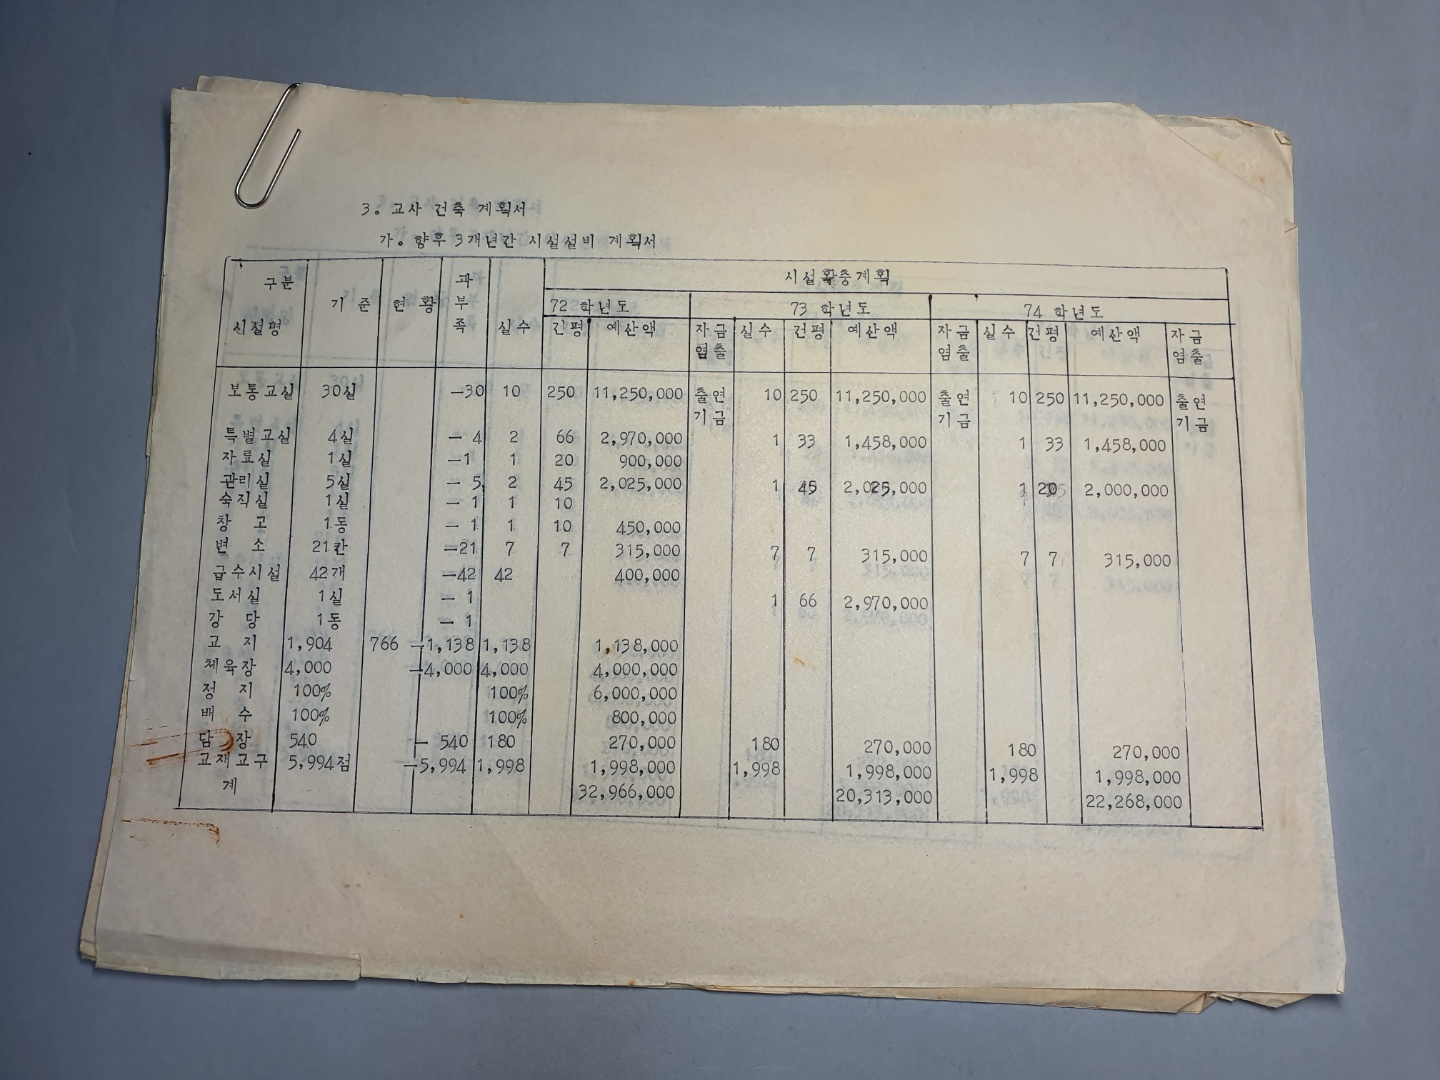 3. 고사 건축 계획서
가. 향후 3개년간 시설설비 계획서
구분 과 시설확충계획
기 준 현 황 부 72 학년도 73 학년도 74 학년도
시설평 족 실수 건평 예산액 자금 실수 건평 예산액 자금 실수 건평 예산액 자금
염출 염출 염출
보통교실 30실 —30 10 250 11,250,000 출연 10 250 11,250,000 출연 10 250 11,250,000 출연
기금 기금 기금
특별교실 4실 — 4 2 66 2,970,000 1 33 1,458,000 1 33 1,458,000
자료실 1실 —1 1 20 900,000
관리실 5실 — 5 2 45 2,025,000 1 45 2,025,000 1 20 2,000,000
숙직실 1실 — 1 1 10
창 고 1동 — 1 1 10 450,000
변 소 21칸 —21 7 7 315,000 7 7 315,000 7 7 315,000
급수시설 42개 —42 42 400,000
도서실 1실 — 1 1 66 2,970,000
강 당 1동 — 1
교 지 1,904 766 —1,138 1,138 1,138,000
체육장 4,000 —4,000 4,000 4,000,000
정 지 100% 100% 6,000,000
배 수 100% 100% 800,000
담 장 540 — 540 180 270,000 180 270,000 180 270,000
교재교구 5,994점 —5,994 1,998 1,998,000 1,998 1,998,000 1,998 1,998,000
계 32,966,000 20,313,000 22,268,000